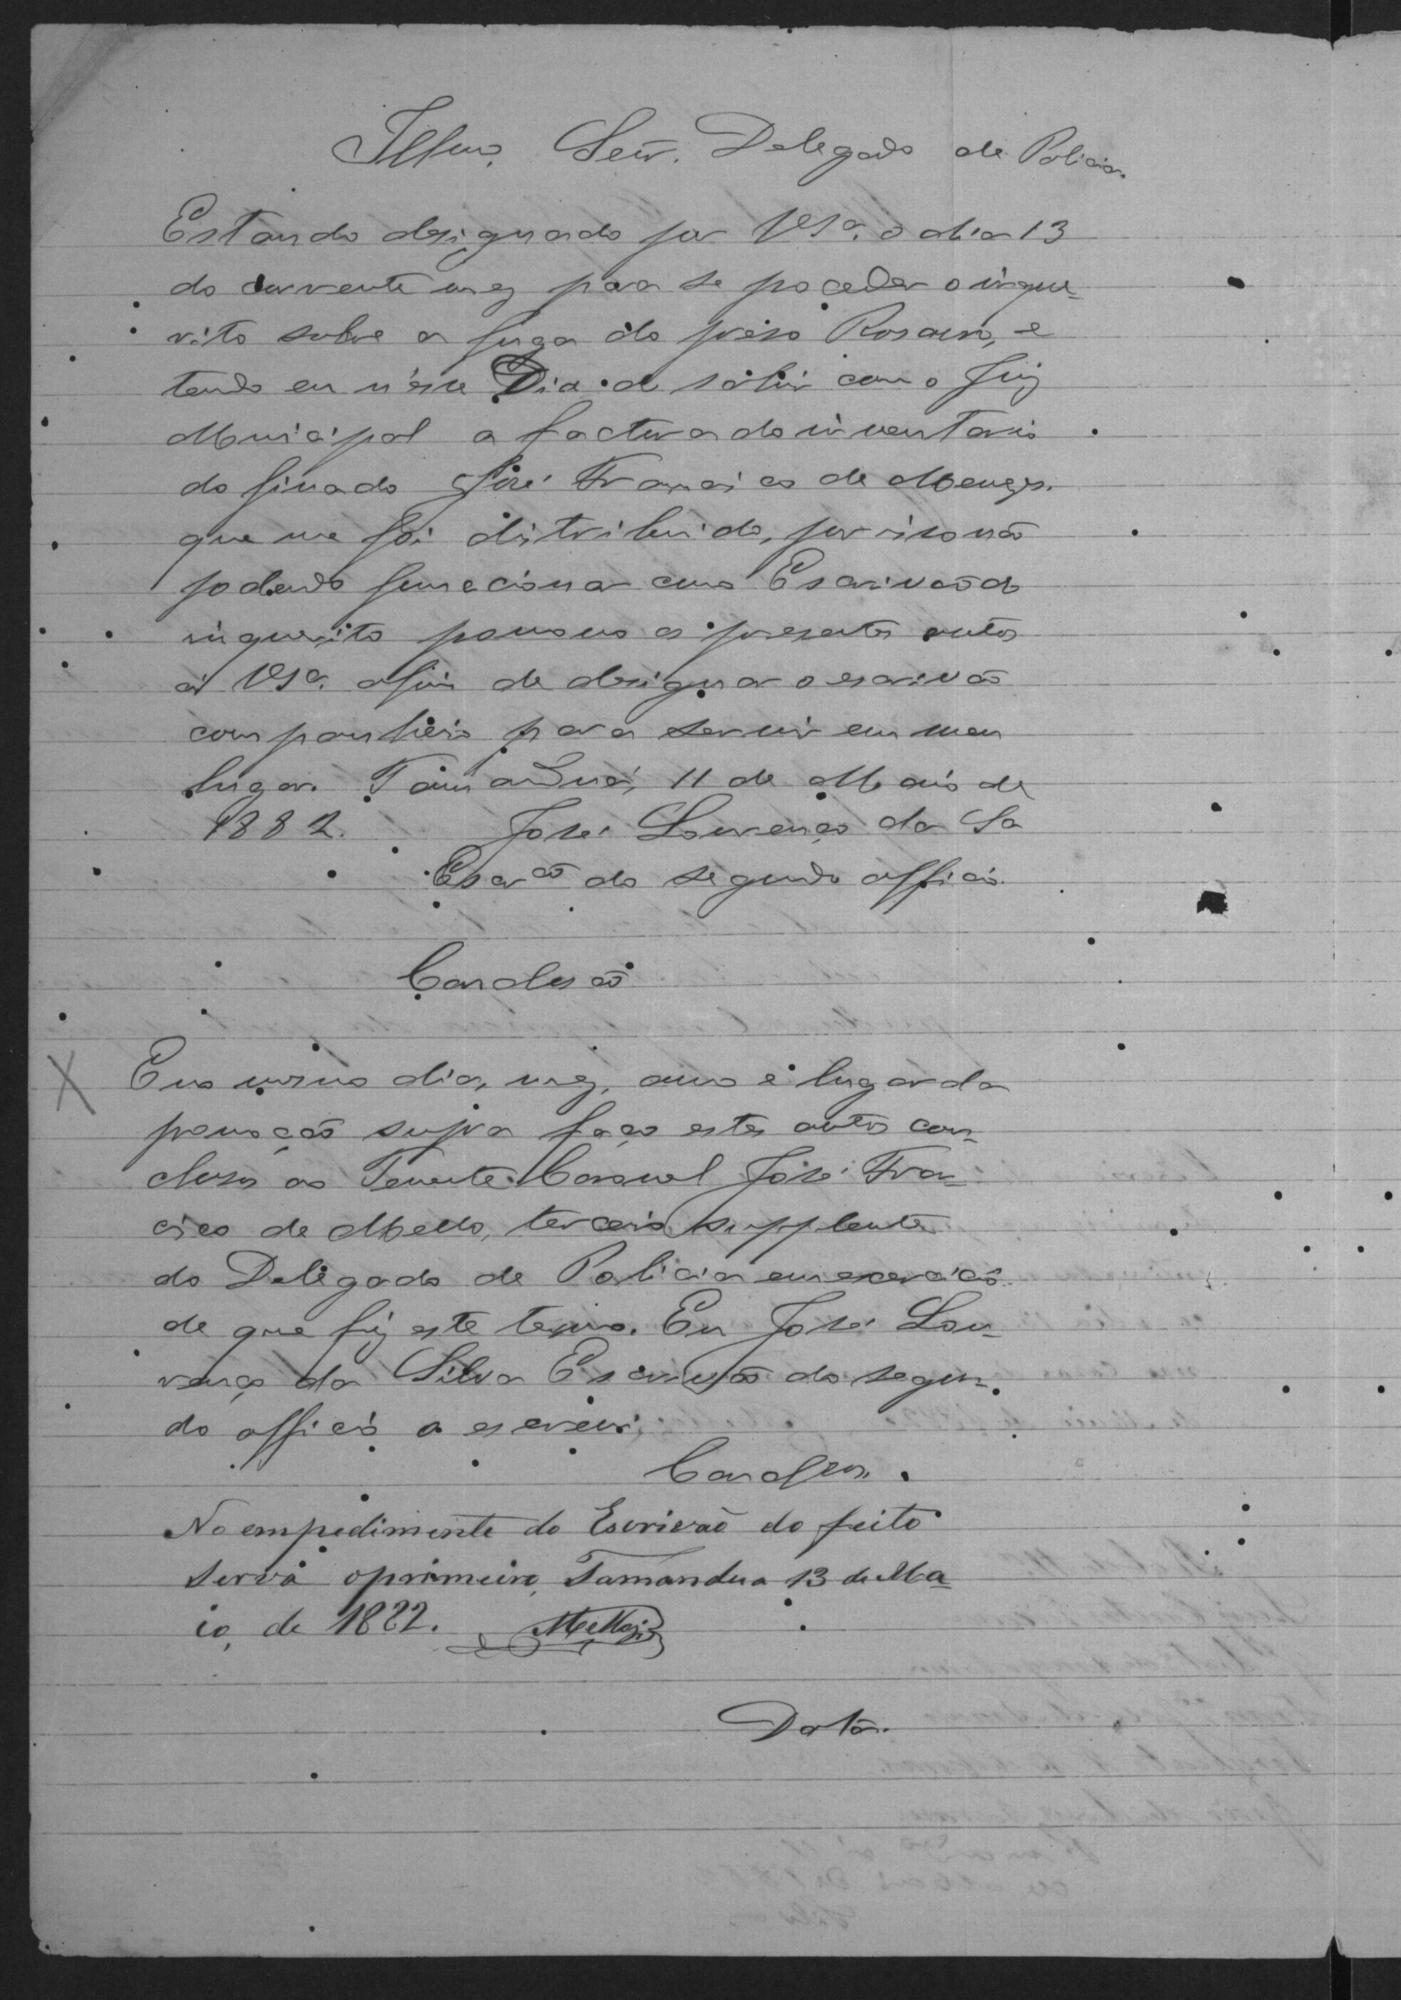 Illmo. Senr. Delegado de Policia.
Estando designado por VSa. o dia 13
do corrente mez para se proceder o inque-
rito sobre a fuga do preso Rosario, e
tendo eu n'esse Dia de sahir com o Juiz
Municipal a factura do inventario
do finado José Francisco de Menezes.
que me foi distribuido, por isso não
podendo funccionar como Escrivão do
inquerito promovo os presentes autos
á VSa. afim de designar o escrivão
companheiro para servir em meu
lugar. Tamanduá, 11 de Maio de
1882. José Lourenço da Sa
Escram do segundo officio.
Conclusão
E no mesmo dia, mez, anno e lugar da
promoção supra faço estes autos con-
clusos ao Tenente Coronel José Fran-
cisco de Mello, terceiro supplente
do Delegado de Policia em exercicio
de que fiz este termo. Eu José Lou-
renço da Silva Escrivão do segun-
do officio o escrevi.
Conclsos.
No empedimento do Escrivão do feito
serva o primeiro, Tamandua 13 de Ma-
io, de 1882. Mello
Data.